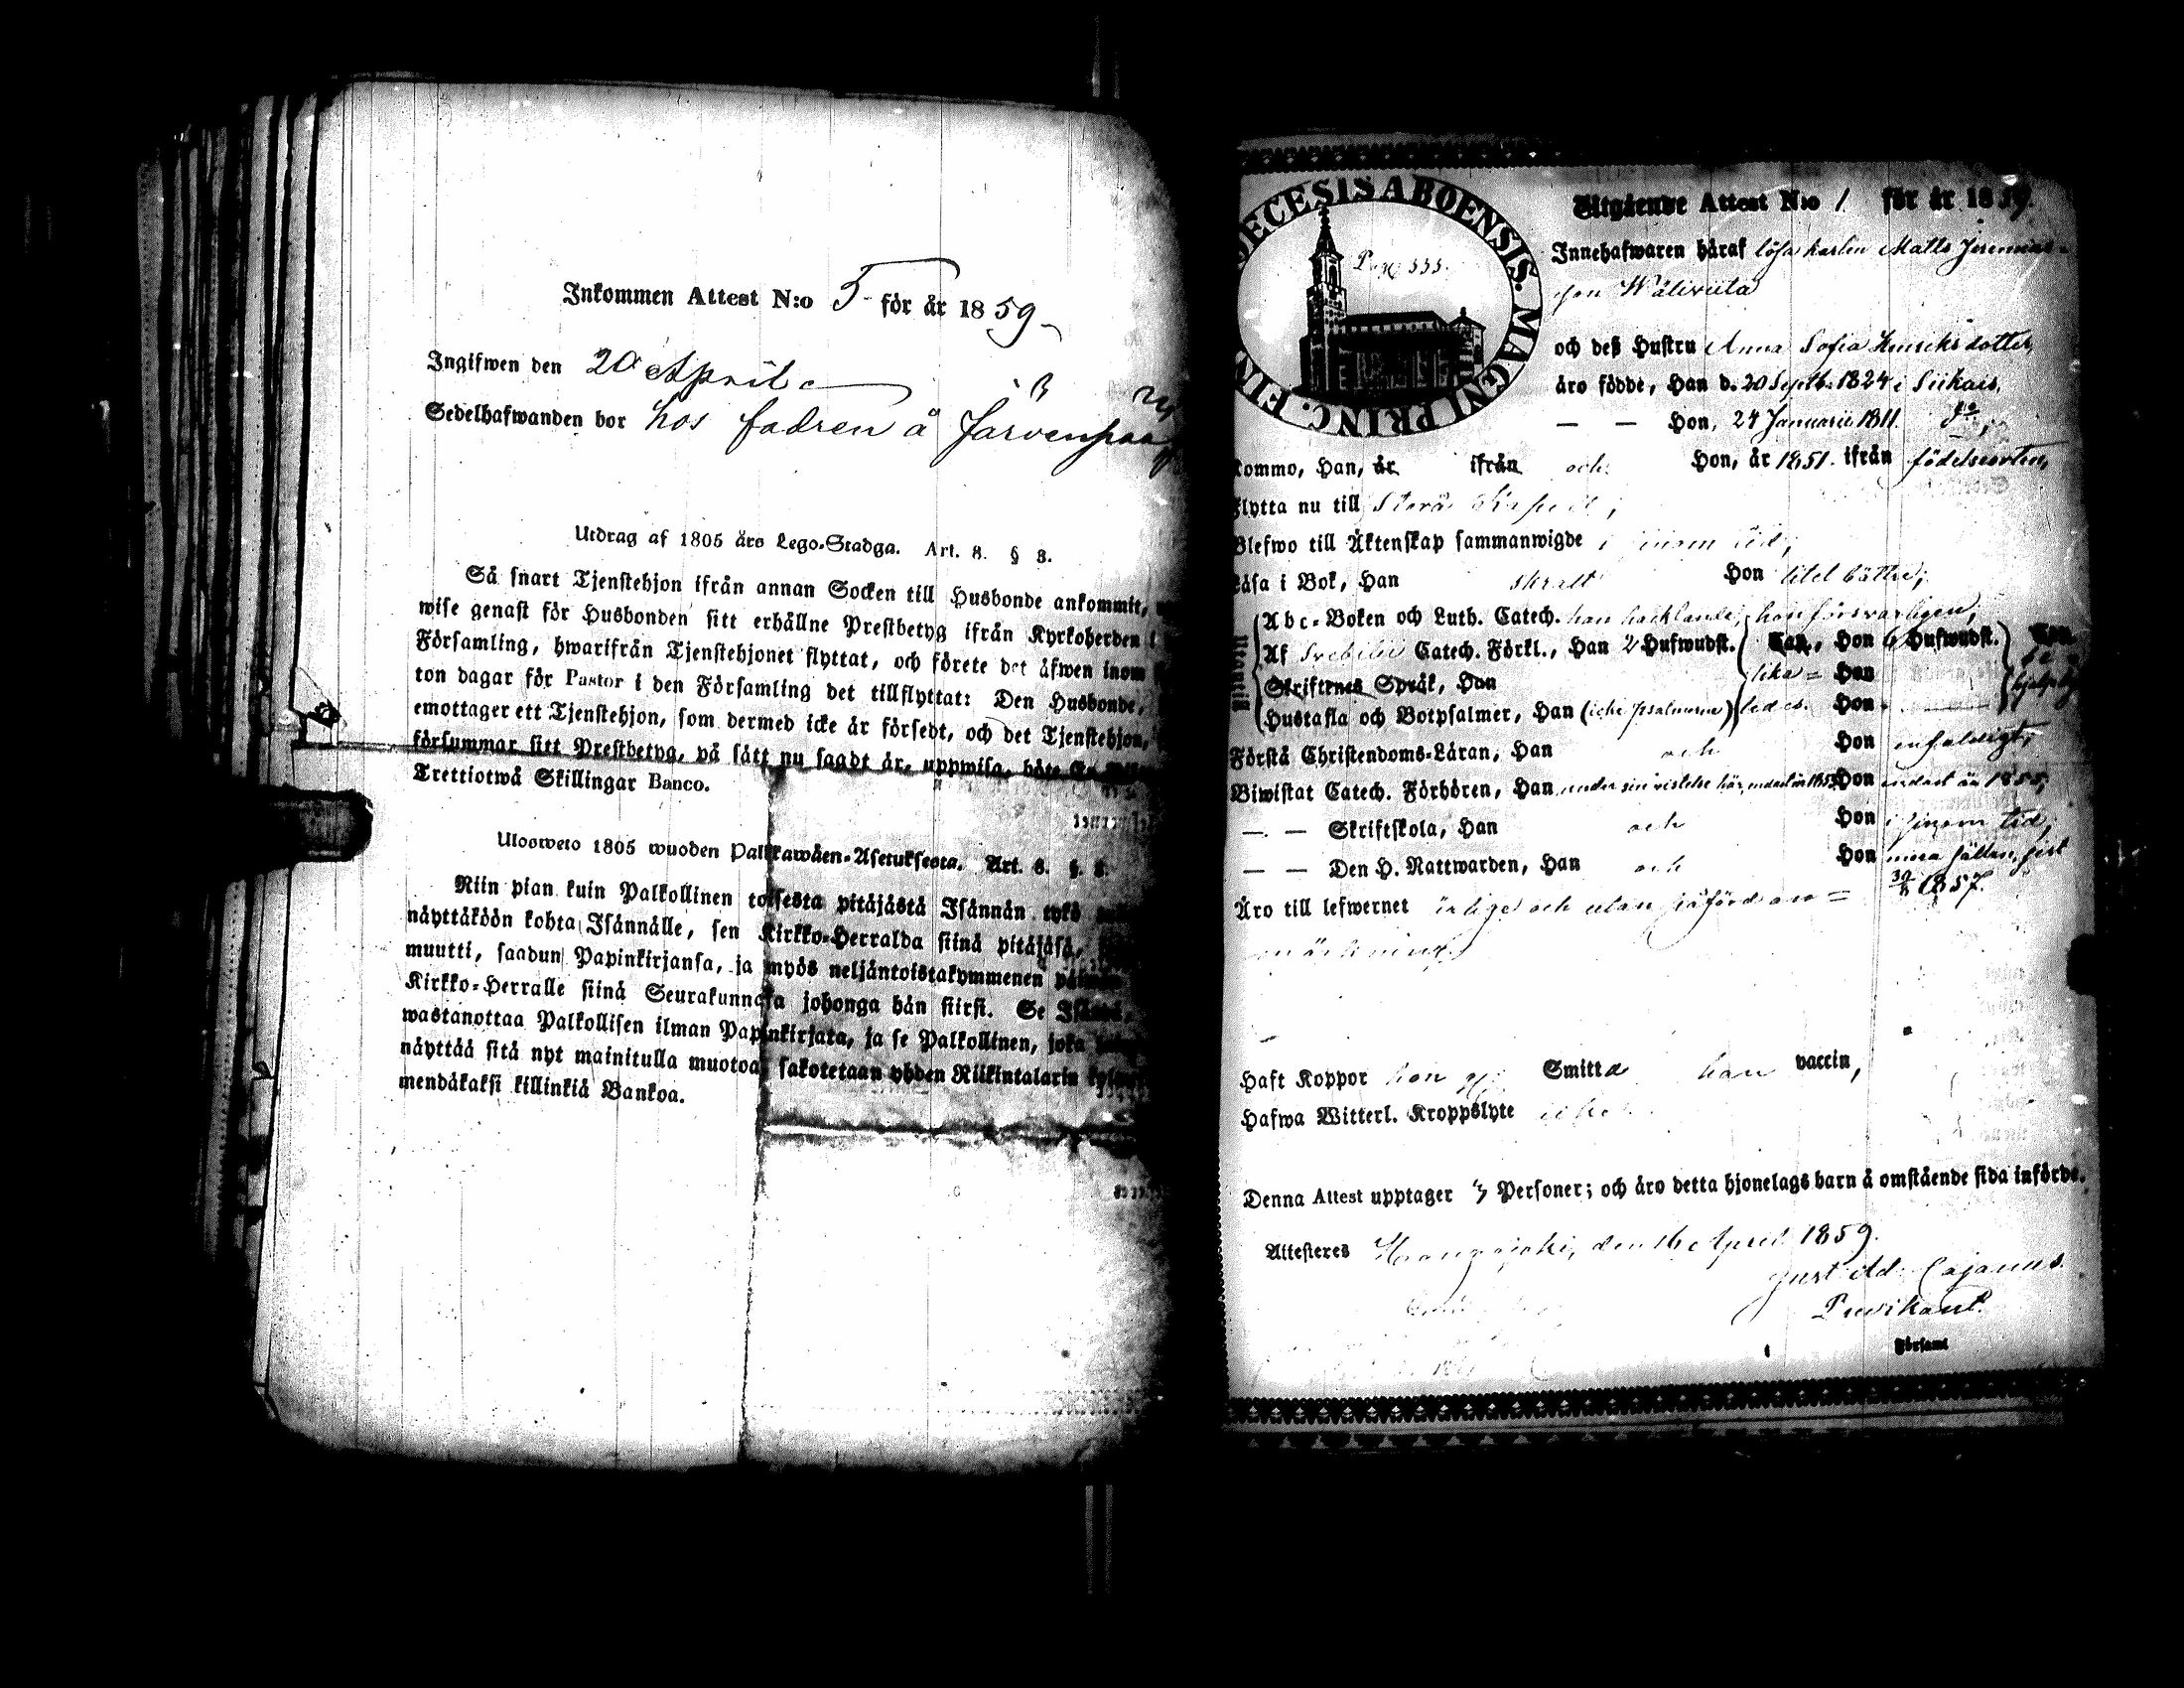 Inkommen Attest N:o 5 för år 1859
Ingifwen den 20 April
Sedelhafwanden bor hos fadren å Järvenpää
Utdrag af 1805 års Lego-Stadga. Art. 8. § 8.
Så snart Tjenstehjon ifrån annan Socken till Husbonde ankommit,
wise genast för Husbonden sitt erhållne Prestbetyg ifrån Kyrkoherden i
Församling, hwarifrån Tjenstehjonet flyttat, och förete det äfwen inom
ton dagar för Pastor i den Församling det tillflyttat: Den Husbonde,
emottager ett Tjenstehjon, som dermed icke är försedt, och det Tjenstehjon,
försummar sitt Prestbetyg, på sätt nu sagdt är, uppwisa, böte En
Trettiotwå Skillingar Banco.
Ulosweto 1805 wuoden Palkkawäen-Asetuksesta. Art. 8. §. 8.
Niin pian kuin Palkollinen toisesta pitäjästä Isännän tykö
näyttäköön kohta Isännälle, sen Kirkko-Herralda siinä pitäjäsä,
muutti, saadun Papinkirjansa, ja myös neljäntoistakymmenen päiwän
Kirkko-Herralle siinä Seurakunnasa johonga hän siirsi. Se Isäntä,
wastanottaa Palkollisen ilman Papinkirjata, ja se Palkollinen, joka
näyttää sitä nyt mainitulla muotoa, sakotetaan yhden Riikintalarin
mendäkaksi killinkiä Bankoa.
DIOECESIS ABOENSIS. MAGNI PRINC. FIN
Pag 555.
Utgående Attest N:o 1 för år 1859.
Innehafwaren häraf lösa karlen Matts Jeremias-
son Wäliviita
och deß Hustru Anna Sofia Henriksdotter,
äro födde, Han d. 20 Septb. 1824 i Siikais,
— — Hon, 24 Januarii 1811. do,
kommo, Han, år ifrån och Hon, år 1851. ifrån födelseorten,
flytta nu till Storå Kapell,
Blefwo till Äktenskap sammanwigde i sinom tid,
Läsa i Bok, Han skralt Hon litet bättre,
Abc-Boken och Luth. Catech. han hacklande, hon försvarligen,
Utantill Af Svebilii Catech. Förkl., Han 2 Hufwudst. Hon 6 Hufwudst.
Skriftenes Språk, Han lika Hon
Hustafla och Botpsalmer, Han (icke psalmerna) Hon
Förstå Christendoms-Läran, Han och Hon enfaldigt,
Biwistat Catech. Förhören, Han under sin vistelse här endast år 1855 Hon endast år 1855,
— — Skriftskola, Han och Hon i sinom tid,
— — Den H. Nattwarden, Han och Hon sist
1857.
Äro till lefwernet ärlige och utan
anmärkning.
Haft Koppor hon Smitta han vaccin,
Hafwa Witterl. Kroppslyte icke
Denna Attest upptager 3 Personer; och äro detta hjonelags barn å omstående sida införde.
Attesteras Honogojoki, den 16 April 1859.
Gust. Ad. Cajanus.
Predikant.
Församl